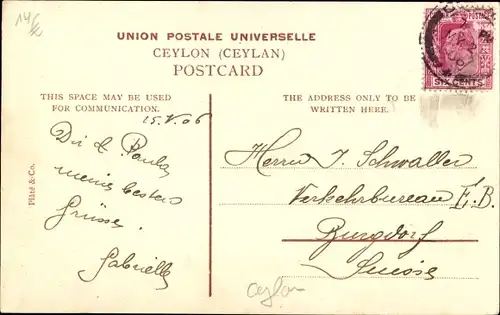 14/
UNION POSTALE UNIVERSELLE
CEYLON (CEYLAN)
POSTCARD
POSTAGE
SIX CENTS
THIS SPACE MAY BE USED
FOR COMMUNICATION.
THE ADDRESS ONLY TO BE
WRITTEN HERE.
15.V.06
Dir & Paula
meine besten
Grüsse.
Gabrielle
Plâté & Co.
Herrn J. Schwaller
Verkehrbureau E.B.
Burgdorf
Suisse
Ceylon